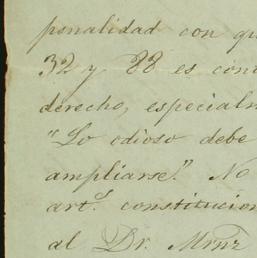 penalidad con qu
32 y 88 es cont
derecho, especialm
"Lo odioso debe
ampliarse." No
art.º constitucion
al Dr. Mrnz